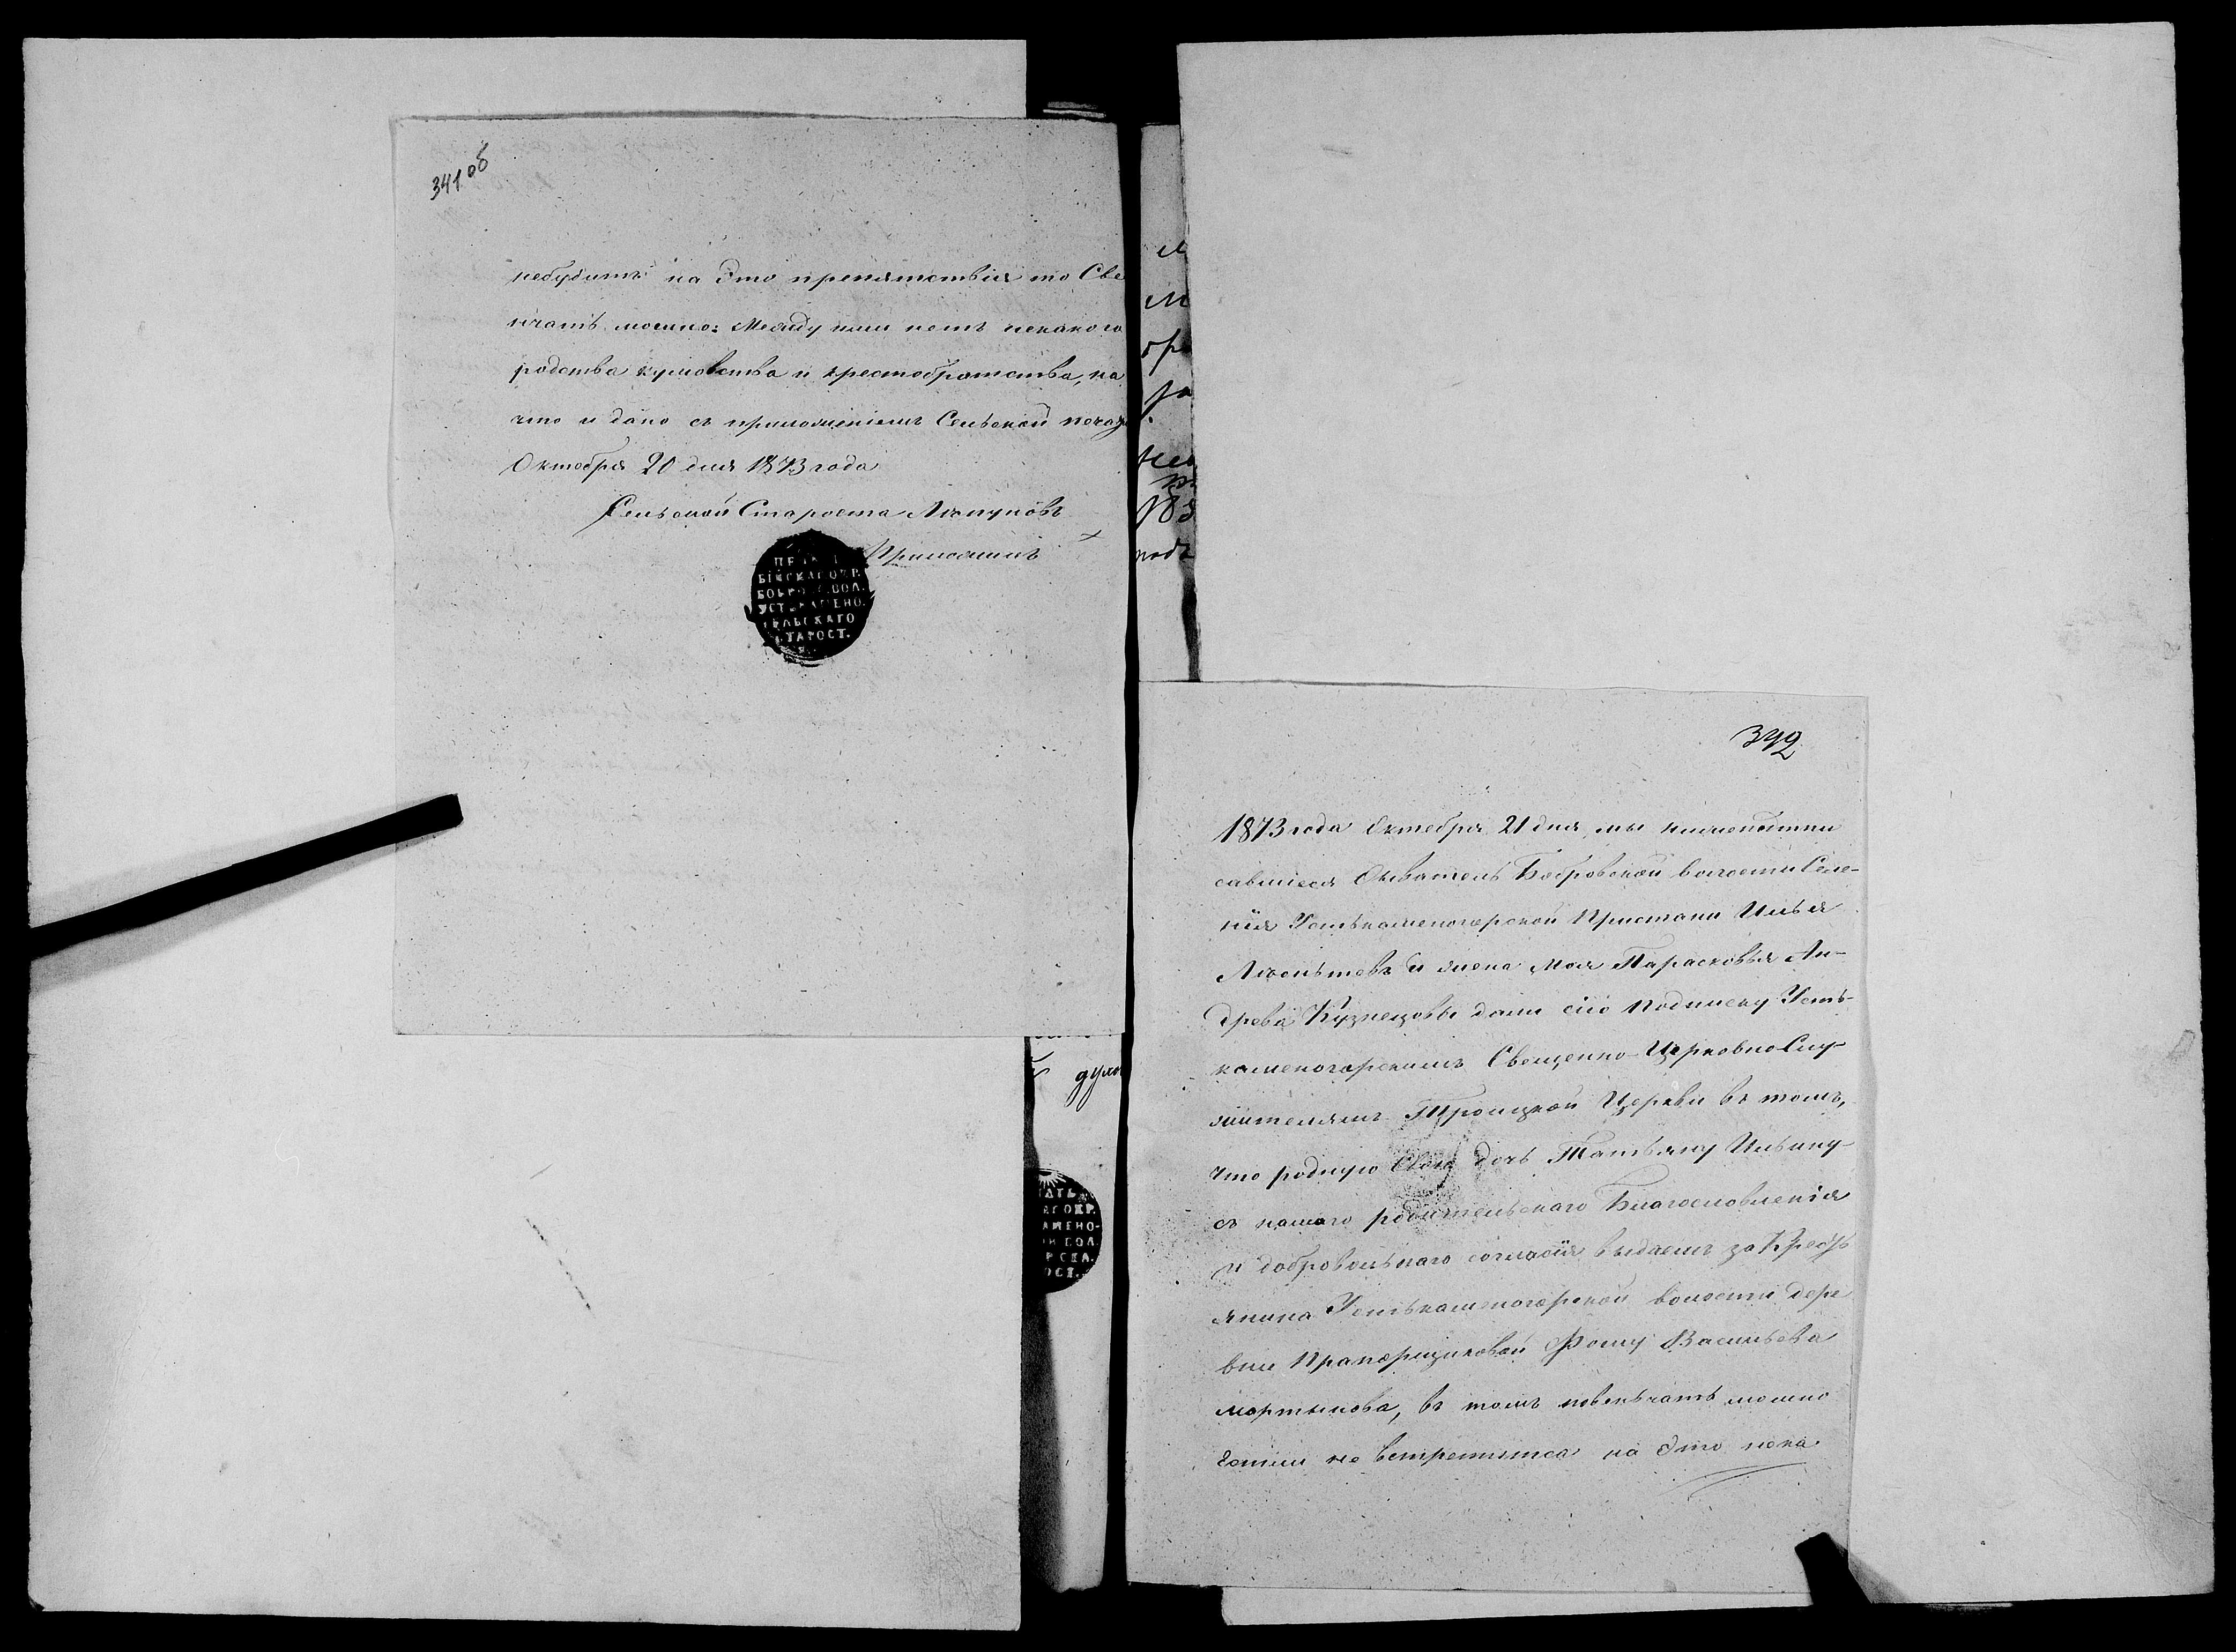 341 об
небудитъ на Это препятствия то Све
нчать можно: Между ими нетъ некакого
родства кумовства и крестобратства, на
что и дано съ приложениемъ Сельской печа
Октебря 20 дня 1873 года
Сельской Староста Ляпуновъ
БІЙСКАГО ОКР.
ВОЛ.
УСТЬКАМЕНО.
СЕЛЬСКАГО
СТАРОСТ.
392
1873 года Октебря 21 дня, мы нижеподпи
савшиеся Бобровской волости Селе-
нія Устькаменогорской Пристани Илья
и жена Моя Парасковья Ан-
древа Кузнецовы дали сию подписку Усть-
каменогорскимъ Свещенно-ЦерковноСлу-
жителямъ Троицкой Церкви въ томъ,
что родную свою дочь Татьяну Ильину-
съ нашого родительскаго Благословленія
и добровольнаго согласія выдаемъ за Кресть
янина Устькаменогорской волости дере
вни Прапорщиковой Фому Васильева
мартынова, въ томъ повеньчать можно
Естли не встретитса на Это нека